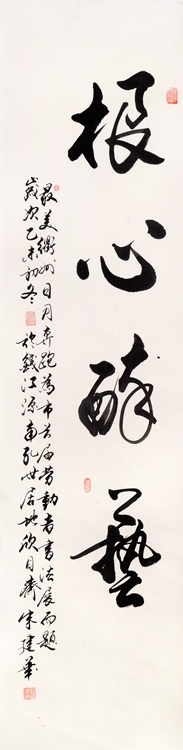 根心醉藝
最美衢州日月奔跑為市首届勞動者書法展而題
歲次乙未初冬於錢江源南孔世居地欣目齋建華